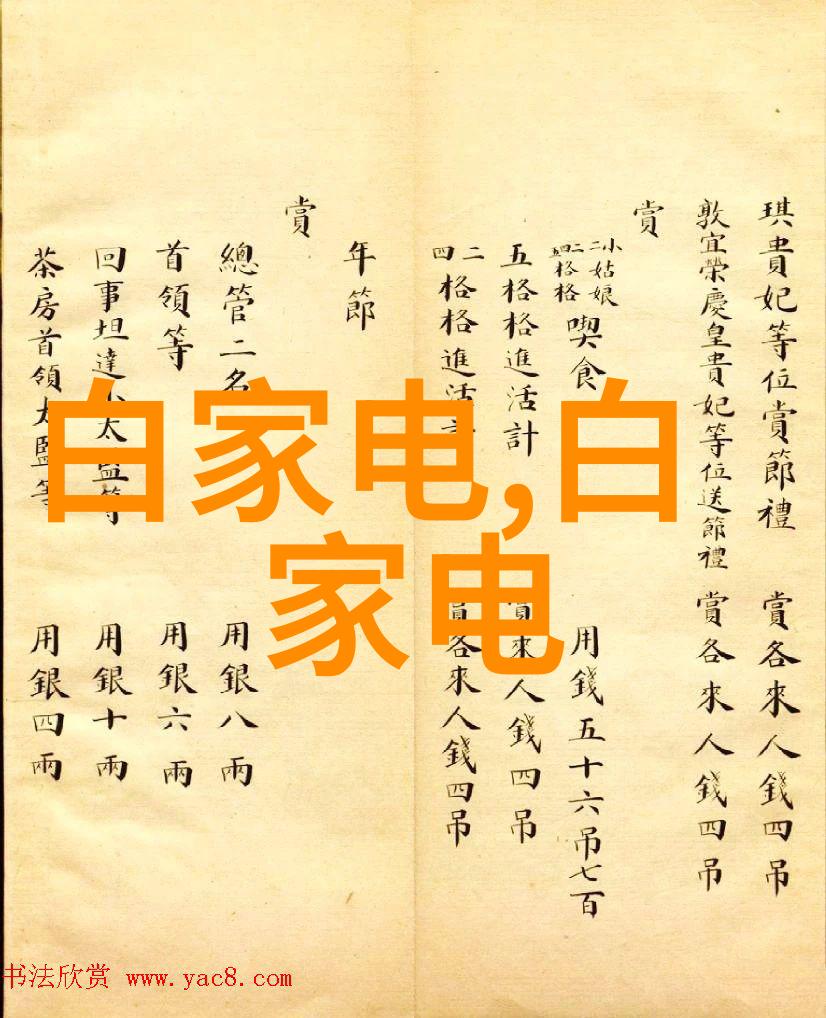 琪貴妃等位賞節禮 賞各來人錢四吊
敦宜榮慶皇貴妃等位送節禮 賞各來人錢四吊
賞
小姑娘
二
二格格
四格格
五
喫食 用錢五十六吊七百
五格格進活計 賞各來人錢四吊
二
四
格格進活計 賞各來人錢四吊
年節
賞
總管二名 用銀八兩
首領等 用銀六兩
回事坦達小太監等 用銀十兩
茶房首領太監等 用銀四兩
白家电,白
家电
书法欣赏 www.yac8.com